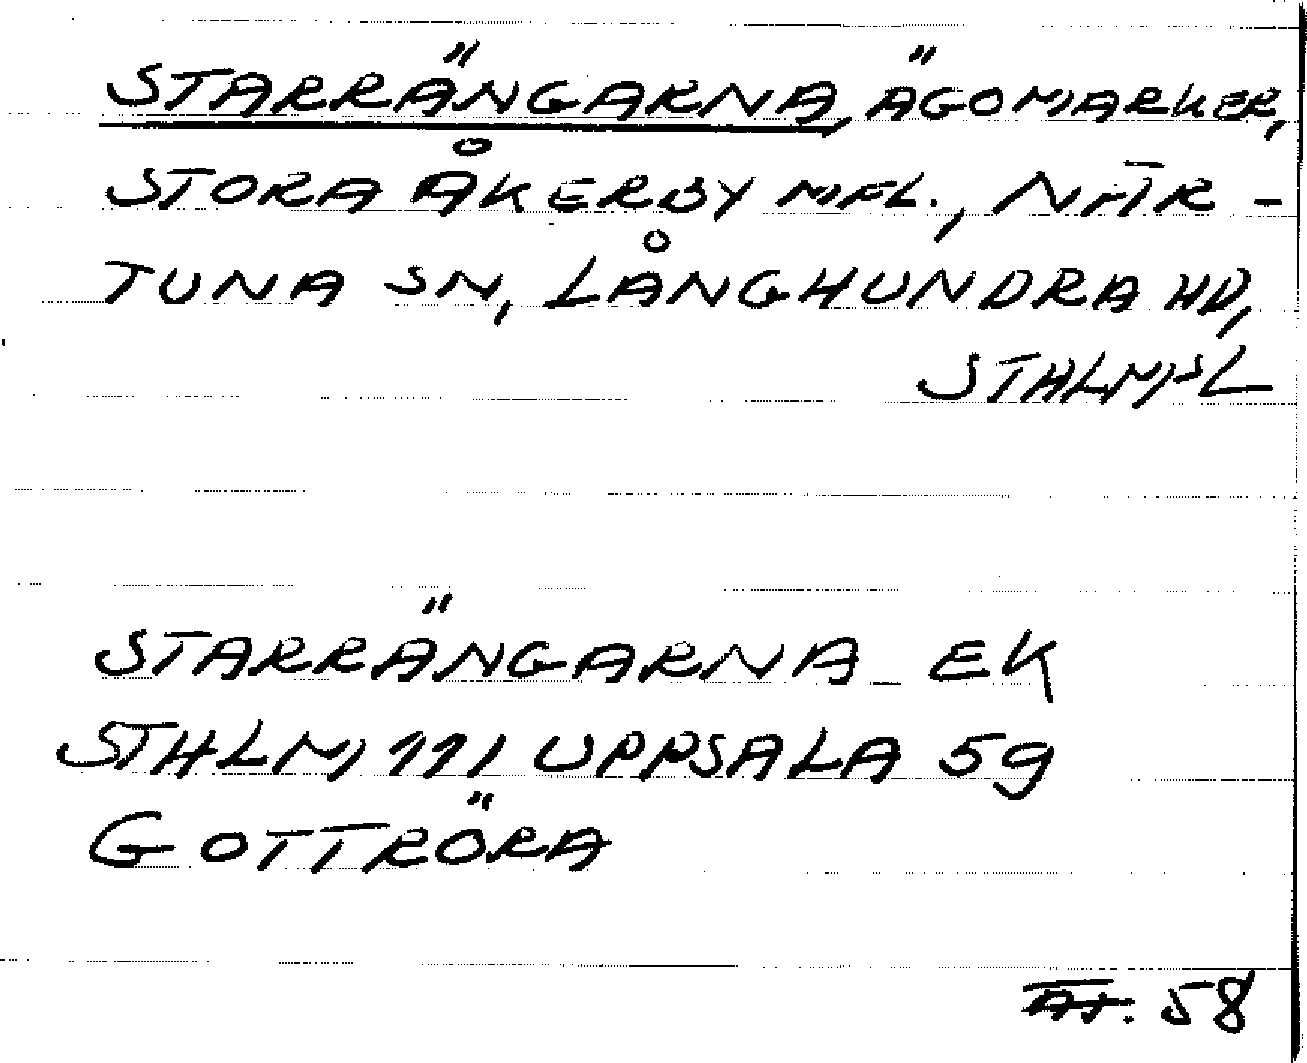 STARRÄNGARNA, ÄGOMARKER,
STORA ÅKERBY MFL., NÄR-
TUNA SN, LÅNGHUNDRA HD,
STHLMSL
STARRÄNGARNA EK
STHLM 111 UPPSALA 59
GOTTRÖRA
58